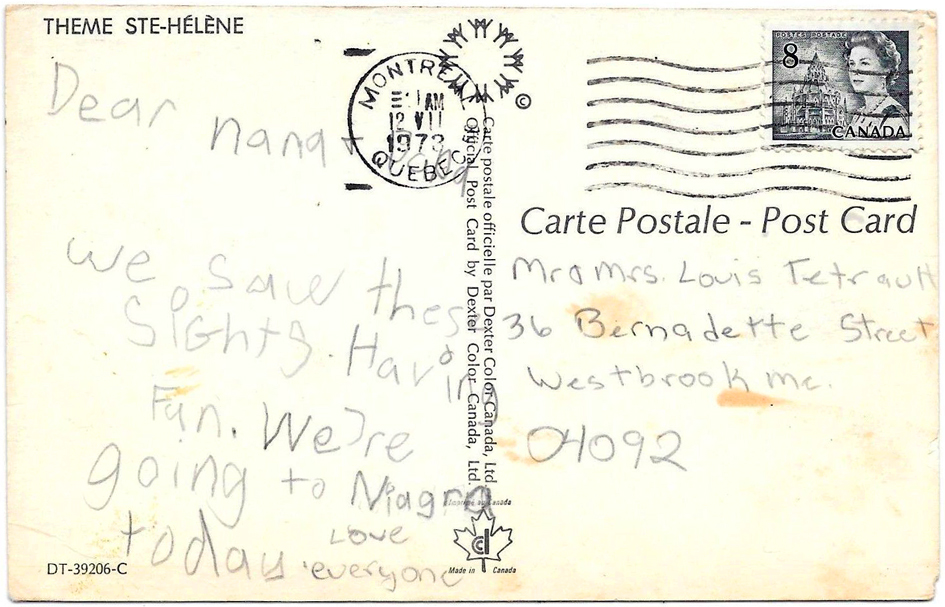 THEME STE-HÉLÈNE
Dear
nana +
We saw these
Sights. Having
Fun. We're
going to Niagra
today.
Love
everyone
DT-39206-C
MONTREAL
AM
12 VII
1973
QUEBEC
©
Carte postale officielle par Dexter Color Canada, Ltd.
Official Post Card by Dexter Color Canada, Ltd.
Imprimé au Canada
cd
Made in Canada
POSTES POSTAGE
8
CANADA
Carte Postale - Post Card
Mr & Mrs. Louis Tetrault
36 Bernadette Street
Westbrook Me.
04092